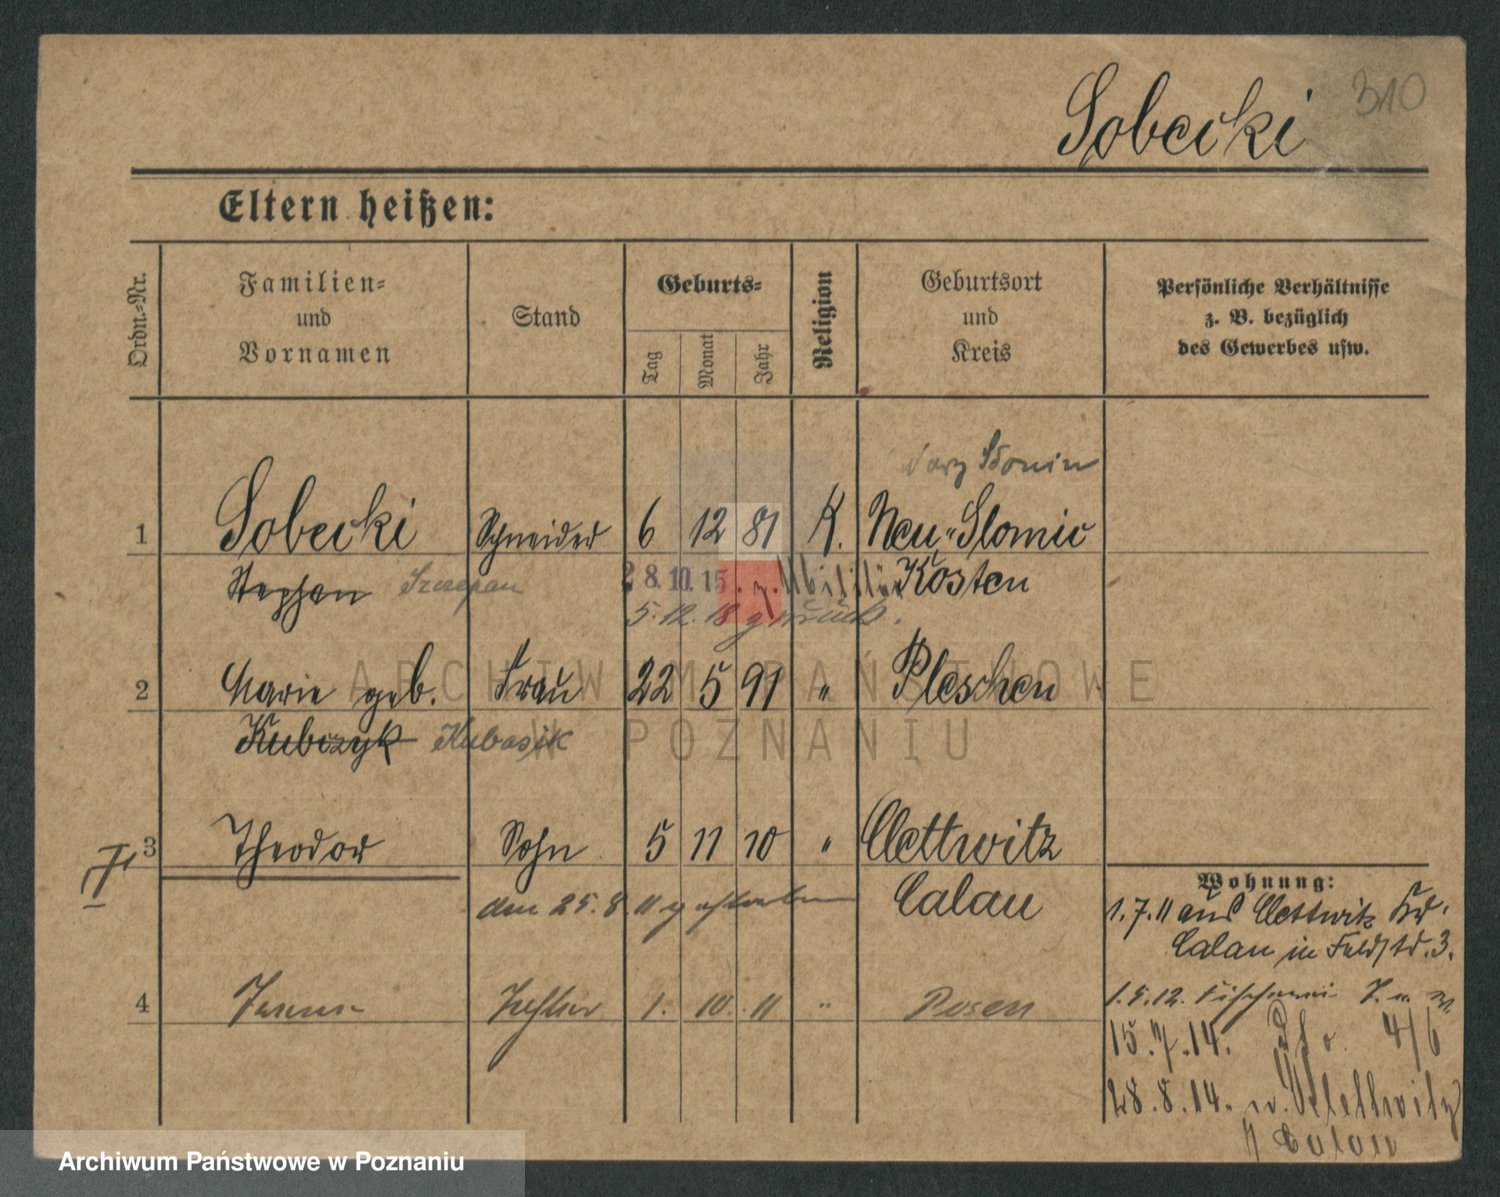 310
Sobecki
Eltern heißen:
Ordn.-Nr.
Familien-
und
Vornamen
Stand
Geburts-
Tag
Monat
Jahr
Religion
Geburtsort
und
Kreis
Persönliche Verhältnisse
z. B. bezüglich
des Gewerbes usw.
1 Sobecki Schneider 6 12 81 K. Neu-Slomic
Stephan Szczepan 28.10.15. z. Militär Kosten
5.12.18 zurück.
2 Marie geb. Frau 22 5 91 " Pleschen
Kubczyk Kubasik
3 Theodor Sohn 5 11 10 " Clettwitz
den 25.8 11 gestorben Calau
Wohnung:
1.7.11 aus Clettwitz Kr.
Calau in Feldstr. 3.
4 Tochter 1. 10. 11 " Posen
1.5.12. Fischerei
15.7.14. 4/6
28.8.14. n. Klettwitz
Calau
ARCHIWUM PAŃSTWOWE
W POZNANIU
Archiwum Państwowe w Poznaniu